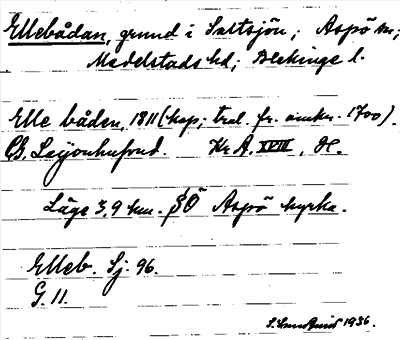 Ellebådan, grund i Saltsjön; Aspö sn;
Medelstads hd; Blekinge l.
Elle båden, 1811 (kop; trol. fr. omkr. 1700).
CG. Leijonhufvud. Kr A. XVIII,
Läge 3,9 km. SÖ Aspö kyrka.
Elleb. Sj. 96.
G. 11.
1936.